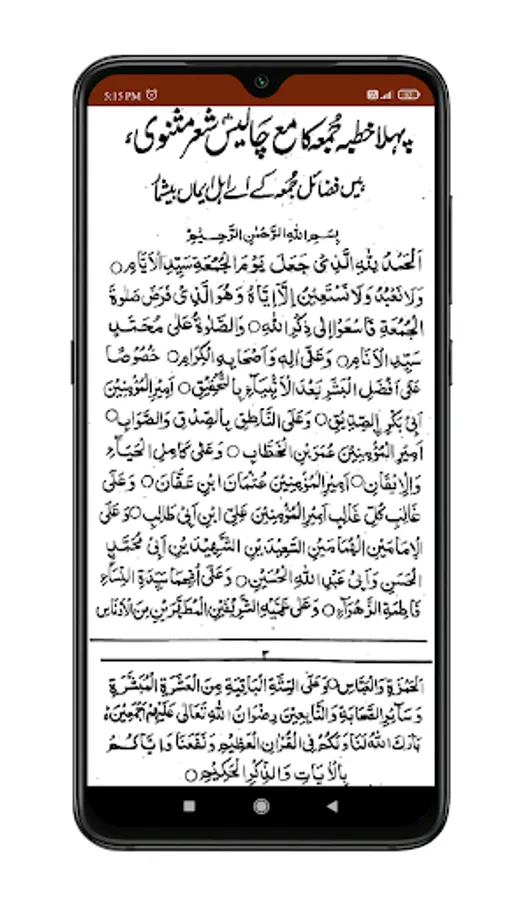 5:15 PM
پہلا خطبہ جُمعہ کا مع چالیسؔ شعر مثنوی،
ہیں فضائل جُمعہ کے اے اہل ایماں بیشمار
بِسْمِ اللهِ الرَّحْمٰنِ الرَّحِيْمِ
اَلْحَمْدُ لِلّٰهِ الَّذِىْ جَعَلَ يَوْمَ الْجُمُعَةِ سَيِّدَ الْاَيَّامِ ○
وَلَا نَعْبُدُ وَلَا نَسْتَعِيْنُ اِلَّا اِيَّاهُ وَهُوَ الَّذِىْ فَرَضَ صَلٰوةَ
الْجُمُعَةِ فَاسْعَوْا اِلٰى ذِكْرِ اللهِ ○ وَالصَّلٰوةُ عَلٰى مُحَمَّدٍ
سَيِّدِ الْاَنَامِ ○ وَعَلٰى اٰلِهٖ وَاَصْحَابِهِ الْكِرَامِ ○ خُصُوْصًا
عَلٰى اَفْضَلِ الْبَشَرِ بَعْدَ الْاَنْبِيَآءِ بِالتَّحْقِيْقِ ○ اَمِيْرِ الْمُؤْمِنِيْنَ
اَبِىْ بَكْرِ ۨالصِّدِّيْقِ ○ وَعَلَى النَّاطِقِ بِالصِّدْقِ وَالصَّوَابِ ○
اَمِيْرِ الْمُؤْمِنِيْنَ عُمَرَ بْنِ الْخَطَّابِ ○ وَعَلٰى كَامِلِ الْحَيَآءِ
وَالْاِيْقَانِ ○ اَمِيْرِ الْمُؤْمِنِيْنَ عُثْمَانَ ابْنِ عَفَّانَ ○ وَعَلٰى
غَالِبِ كُلِّ غَالِبٍ اَمِيْرِ الْمُؤْمِنِيْنَ عَلِىِّ ابْنِ اَبِىْ طَالِبٍ ○ وَعَلَى
الْاِمَامَيْنِ الْهُمَامَيْنِ السَّعِيْدَيْنِ الشَّهِيْدَيْنِ اَبِىْ مُحَمَّدِ
الْحَسَنِ وَاَبِىْ عَبْدِ اللهِ الْحُسَيْنِ ○ وَعَلٰى اُمِّهِمَا سَيِّدَةِ النِّسَآءِ
فَاطِمَةِ الزَّهْرَآءِ ○ وَعَلٰى عَمَّيْهِ الشَّرِيْفَيْنِ الْمُطَهَّرَيْنِ مِنَ الْاَدْنَاسِ
۳
الْحَمْزَةِ وَالْعَبَّاسِ ○ وَعَلَى السِّتَّةِ الْبَاقِيَةِ مِنَ الْعَشَرَةِ الْمُبَشَّرَةِ
وَسَآئِرِ الصَّحَابَةِ وَالتَّابِعِيْنَ رِضْوَانُ اللهِ تَعَالٰى عَلَيْهِمْ اَجْمَعِيْنَ ○
بَارَكَ اللهُ لَنَا وَلَكُمْ فِى الْقُرْاٰنِ الْعَظِيْمِ وَنَفَعَنَا وَاِيَّاكُمْ
بِالْاٰيَاتِ وَالذِّكْرِ الْحَكِيْمِ ○